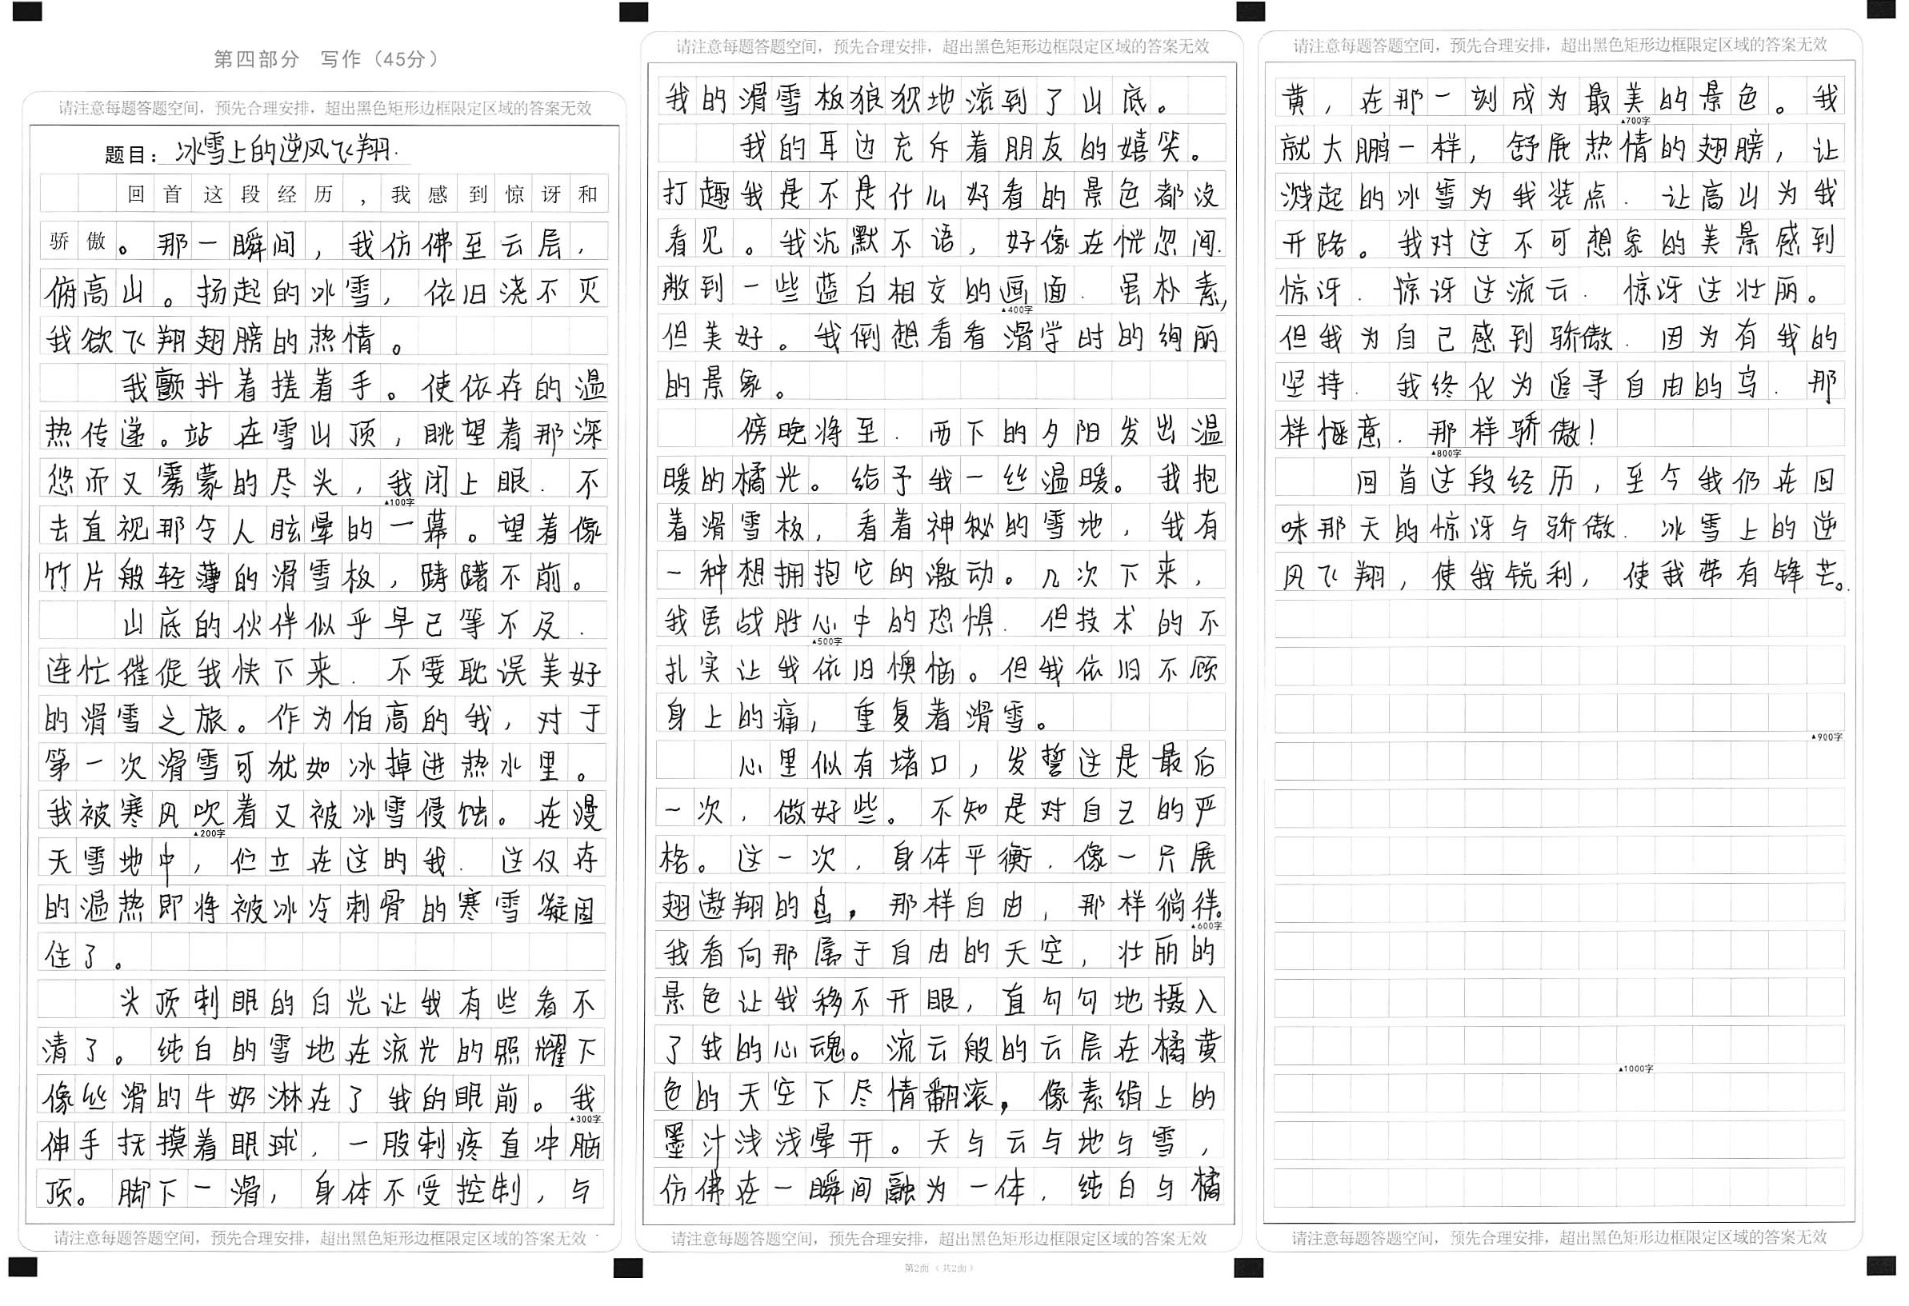 第四部分 写作（45分）
请注意每题答题空间，预先合理安排，超出黑色矩形边框限定区域的答案无效
题目：冰雪上的逆风飞翔.
回首这段经历，我感到惊讶和
骄傲。那一瞬间，我仿佛至云层，
俯高山。扬起的冰雪，依旧浇不灭
我欲飞翔翅膀的热情。
我颤抖着搓着手。使依存的温
热传递。站在雪山顶，眺望着那深
悠而又雾蒙的尽头，我闭上眼．不
▲100字
去直视那令人眩晕的一幕。望着像
竹片般轻薄的滑雪板，踌躇不前。
山底的伙伴似乎早已等不及．
连忙催促我快下来．不要耽误美好
的滑雪之旅。作为怕高的我，对于
第一次滑雪可犹如冰掉进热水里。
我被寒风吹着又被冰雪侵蚀。在漫
▲200字
天雪地中，伫立在这的我．这仅存
的温热即将被冰冷刺骨的寒雪凝固
住了。
头顶刺眼的白光让我有些看不
清了。纯白的雪地在流光的照耀下
像丝滑的牛奶淋在了我的眼前。我
▲300字
伸手抚摸着眼球，一股刺疼直冲脑
顶。脚下一滑，身体不受控制，与
请注意每题答题空间，预先合理安排，超出黑色矩形边框限定区域的答案无效
请注意每题答题空间，预先合理安排，超出黑色矩形边框限定区域的答案无效
我的滑雪板狼狈地滚到了山底。
我的耳边充斥着朋友的嬉笑。
打趣我是不是什么好看的景色都没
看见。我沉默不语，好像在恍忽间．
瞧到一些蓝白相交的画面．虽朴素，
▲400字
但美好。我倒想看看滑学时的绚丽
的景象。
傍晚将至．西下的夕阳发出温
暖的橘光。给予我一丝温暖。我抱
着滑雪板，看着神秘的雪地，我有
一种想拥抱它的激动。几次下来，
我虽战胜心中的恐惧．但技术的不
▲500字
扎实让我依旧懊恼。但我依旧不顾
身上的痛，重复着滑雪。
心里似有堵口，发誓这是最后
一次，做好些。不知是对自己的严
格。这一次，身体平衡．像一只展
翅遨翔的鸟，那样自由，那样徜徉。
▲600字
我看向那属于自由的天空，壮丽的
景色让我移不开眼，直勾勾地摄入
了我的心魂。流云般的云层在橘黄
色的天空下尽情翻滚，像素绢上的
墨汁浅浅晕开。天与云与地与雪，
仿佛在一瞬间融为一体．纯白与橘
请注意每题答题空间，预先合理安排，超出黑色矩形边框限定区域的答案无效
第2面（共2面）
请注意每题答题空间，预先合理安排，超出黑色矩形边框限定区域的答案无效
黄，在那一刻成为最美的景色。我
▲700字
就大鹏一样，舒展热情的翅膀，让
溅起的冰雪为我装点．让高山为我
开路。我对这不可想象的美景感到
惊讶．惊讶这流云．惊讶这壮丽。
但我为自己感到骄傲．因为有我的
坚持．我终化为追寻自由的鸟．那
样惬意．那样骄傲！
▲800字
回首这段经历，至今我仍在回
味那天的惊讶与骄傲．冰雪上的逆
风飞翔，使我锐利，使我带有锋芒。
▲900字
▲1000字
请注意每题答题空间，预先合理安排，超出黑色矩形边框限定区域的答案无效